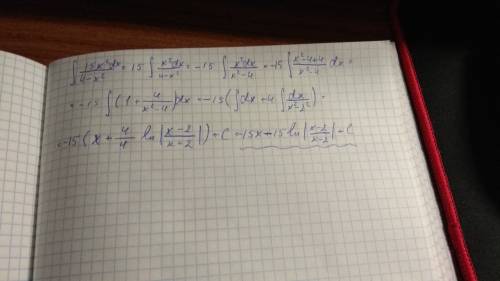 ∫ 15x²dx/(4-x²) = 15 ∫ x²dx/(4-x²) = -15 ∫ x²dx/(x²-4) = -15 ∫ (x²-4+4)/(x²-4) dx =
= -15 ∫ (1 + 4/(x²-4)) dx = -15 (∫dx + 4 ∫ dx/(x²-2²)) =
= -15 (x + 4/4 ln |(x-2)/(x-2)|) + C = -15x - 15 ln |(x-2)/(x-2)| + C